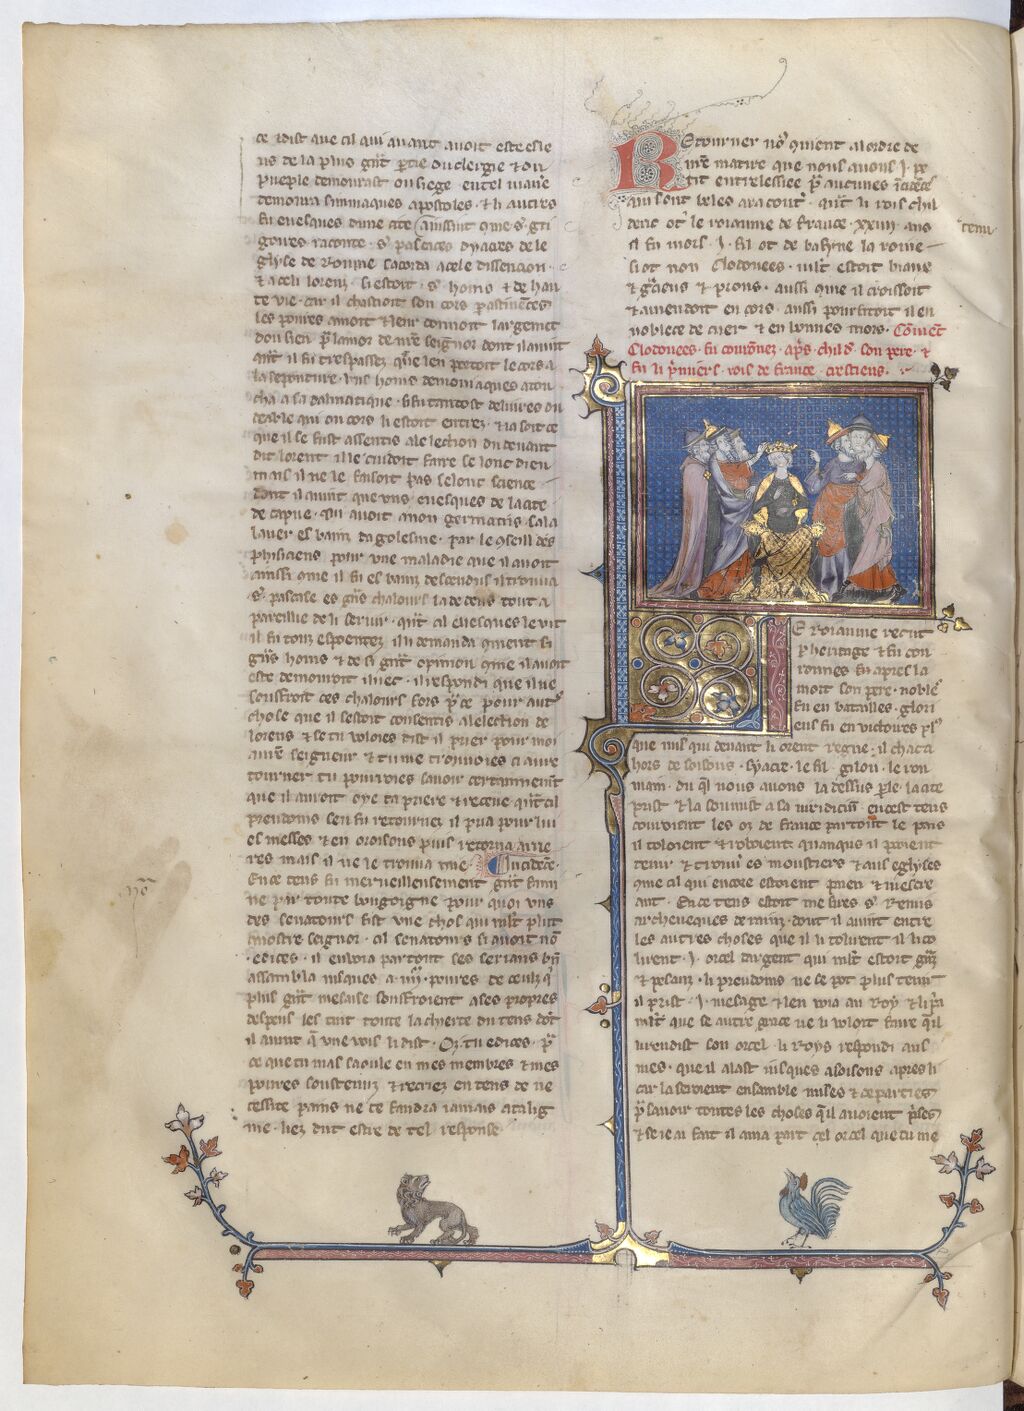 ce dist que cil qui auant auoit este esle
us de la plus grāt ꝑtie du clergie ⁊ du
pueple demourast ou siege en tel maniere
demoura simmaques apostoles · ⁊ li autres
fu euesques dune cite
goires raconte · pascases dyacres de le
glyse de Romme sacorda a cele dissencion ·
⁊ a celi lorenz · si estoit · s hons ⁊ de hau
te vie · car il chastioit son cors
les poures amoit ⁊ leur donnoit largemēt
dou sien pour lamor de nrē seignor dont il auint
quāt il fu trespassez que len portoit le cors a
la sepouture · vns hons demoniaques atou
cha a sa dalmatique · ⁊ fu tantost deliures du
deable qui ou cors li estoit entrez · ⁊ ia soit ce
que il se fust assentis a le lection du deuant
dit lorent il le cuidoit faire selonc dieu
mais il ne le faisoit pas selont science ·
dont il auint que vns euesques de la cite
de capue · qui auoit a non germains sala
lauer es bainz dagolesme · par le conseil des
phisiciens pour vne maladie que il auoit
ainssi cōme il fu es bainz descendus il trouua
s pascase es grās chalours la dedens tout a
pareillie de li seruir · quāt cil euesques le vit
il fu touz espoentez il li demanda coment si
grās hons ⁊ de si grāt opinien cōme il auoit
este demouroit iluec · il respondi que il ne
souffroit ces chalours fors pour autre
chose que il sestoit consentis a lelection de
lorens ⁊ se tu voloies dist il prier pour moi
a nrē seigneur ⁊ tu me trouuoies ci a ure
tourner tu pourroies sauoir certainnement
que il auroit oye ta priere ⁊ receue quāt cil
preudoms sen fu retournez il pria pour lui
es messes ⁊ en oroisons puis retorna arrie
res mais il ne le trouua mie · Incidēce ·
En ce tens fu merueilleusement grāt fami
ne par toute bougoigne pour quoi vns
des senatours fist vne chose qui mlt plut
a nostre seignor · cil senatours si auoit nō
· edices · il enuoia partout ses serians ⁊
assembla iusques a · iiijm · poures de ceulz qui
plus grāt mesaise souffroient a ses propres
despens les tint toute la chierte du tens dōt
il auint que vne vois li dist · Oz tu edices ·
ce que tu mas saoule en mes membres ⁊ mes
poures soustenuz ⁊ recreez en tens de ne
cessite pains ne te faudra iamais a ta lig
nie · liez dut estre de tel response
Retourner nous conuient al ordre de
nrē matire que nous auons .i. pe
tit entrelessiee pour aucunes incidēces
qui sont beles a raconter · quāt li rois chil
deric ot le roiaume de france · xxiiij · ans
tenu
il fu mors · i · fil ot de basine la roine
si ot non Clodouees · mlt estoit biaus
⁊ gracieus ⁊ prous · aussi cōme il croissoit
⁊ amendoit en cors · aussi pourfitoit il en
noblece de cuer ⁊ en bonnes mors · Cōment
Clodouees fu couronnez · apres · childeric son pere · ⁊
fu li premiers rois de france crestiens ·
Le Roiaume recut
par heritage ⁊ fu cou
ronnes fu apres la
mort son pere · nobles
fu en batailles · glori
eus fu en victoires plus
que nus qui deuant li orent regne · il chaca
hors de soisons · syacre · le fil gilon · le rou
main · du quel nous auons la dessus parle · la cite
prist ⁊ la soumist a sa iuridicion en cest tens
couroient les oz de france partout le pais
il toloient ⁊ roboient quanquil il pooient
tenir ⁊ trouuer es moustiers ⁊ aus eglyses
cōme cil qui encore estoient paien ⁊ mescre
ant · En ce tens estoit mesires s Remis
arceuesques de rainz dont il auint entre
les autres choses que il li tolirent il li to
lirent · i · orcel dargent qui mlt estoit granz
⁊ pesanz · li preudoms ne se pot plus tenir
il prist · i · mesage ⁊ len voia au Roy ⁊ li pria
mlt que se autre grace ne li voloit faire quil
li rendist son orcel · li Roys respondi aus
mes · que il alast iusques a soisons apres li
car la seroient ensamble mises ⁊ departies
pour sauoir toutes les choses quil auoient prises
⁊ se ie ai fait il aura part cel orcel que tu me